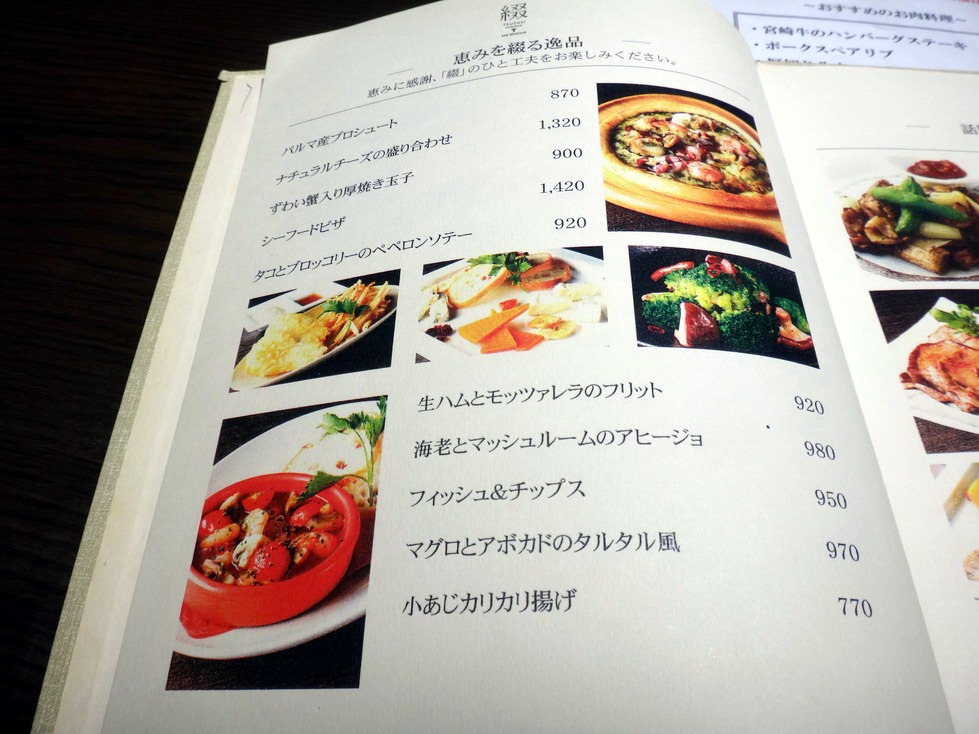 綴
TSUZURI
恵みを綴る逸品
恵みに感謝、「綴」のひと工夫をお楽しみください。
パルマ産プロシュート 870
ナチュラルチーズの盛り合わせ 1,320
ずわい蟹入り厚焼き玉子 900
シーフードピザ 1,420
タコとブロッコリーのペペロンソテー 920
生ハムとモッツァレラのフリット 920
海老とマッシュルームのアヒージョ 980
フィッシュ&チップス 950
マグロとアボカドのタルタル風 970
小あじカリカリ揚げ 770
～おすすめのお肉料理～
・宮崎牛のハンバーグステーキ
・ポークスペアリブ